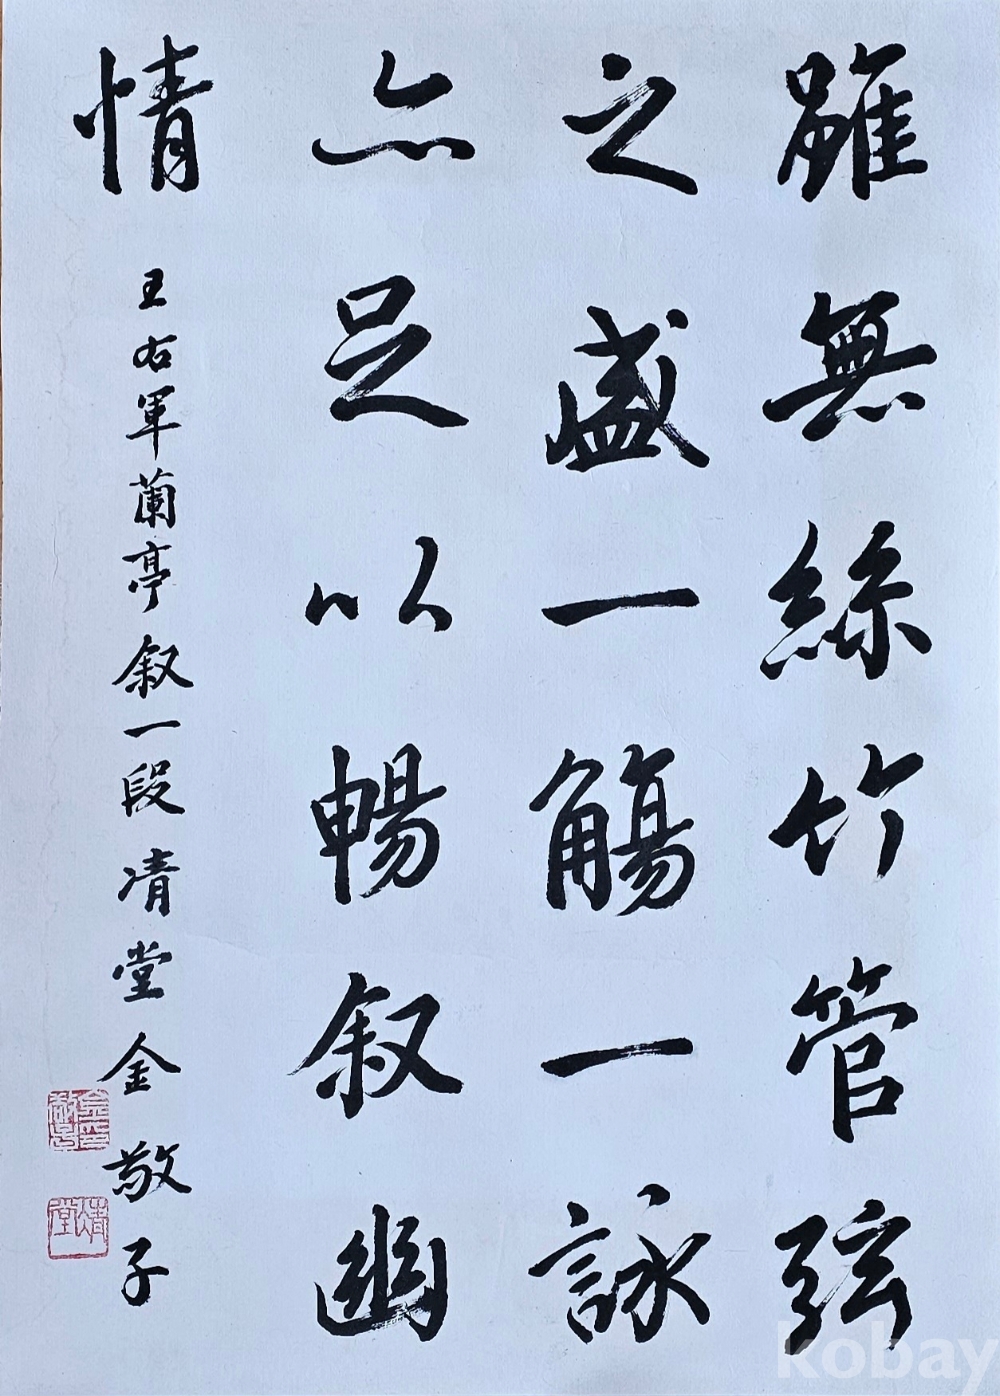 雖無絲竹管弦
之盛一觴一詠
亦足以暢叙幽
情
王右軍蘭亭叙一段 清堂 金敬子
金敬子印
清堂
kobay